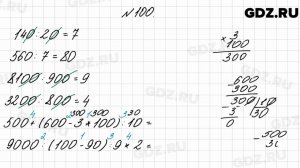 GDZ.RU
№ 100
140 : 20 = 7
560 : 7 = 80
8100 : 900 = 9
3200 : 800 = 4
500 + (600 - 3 × 100) : 10 =
9000 : (100 - 90) : 9 × 2 =
× 3
100
300
600
300
300 | 10
3 | 30
0
500
30
GDZ.RU